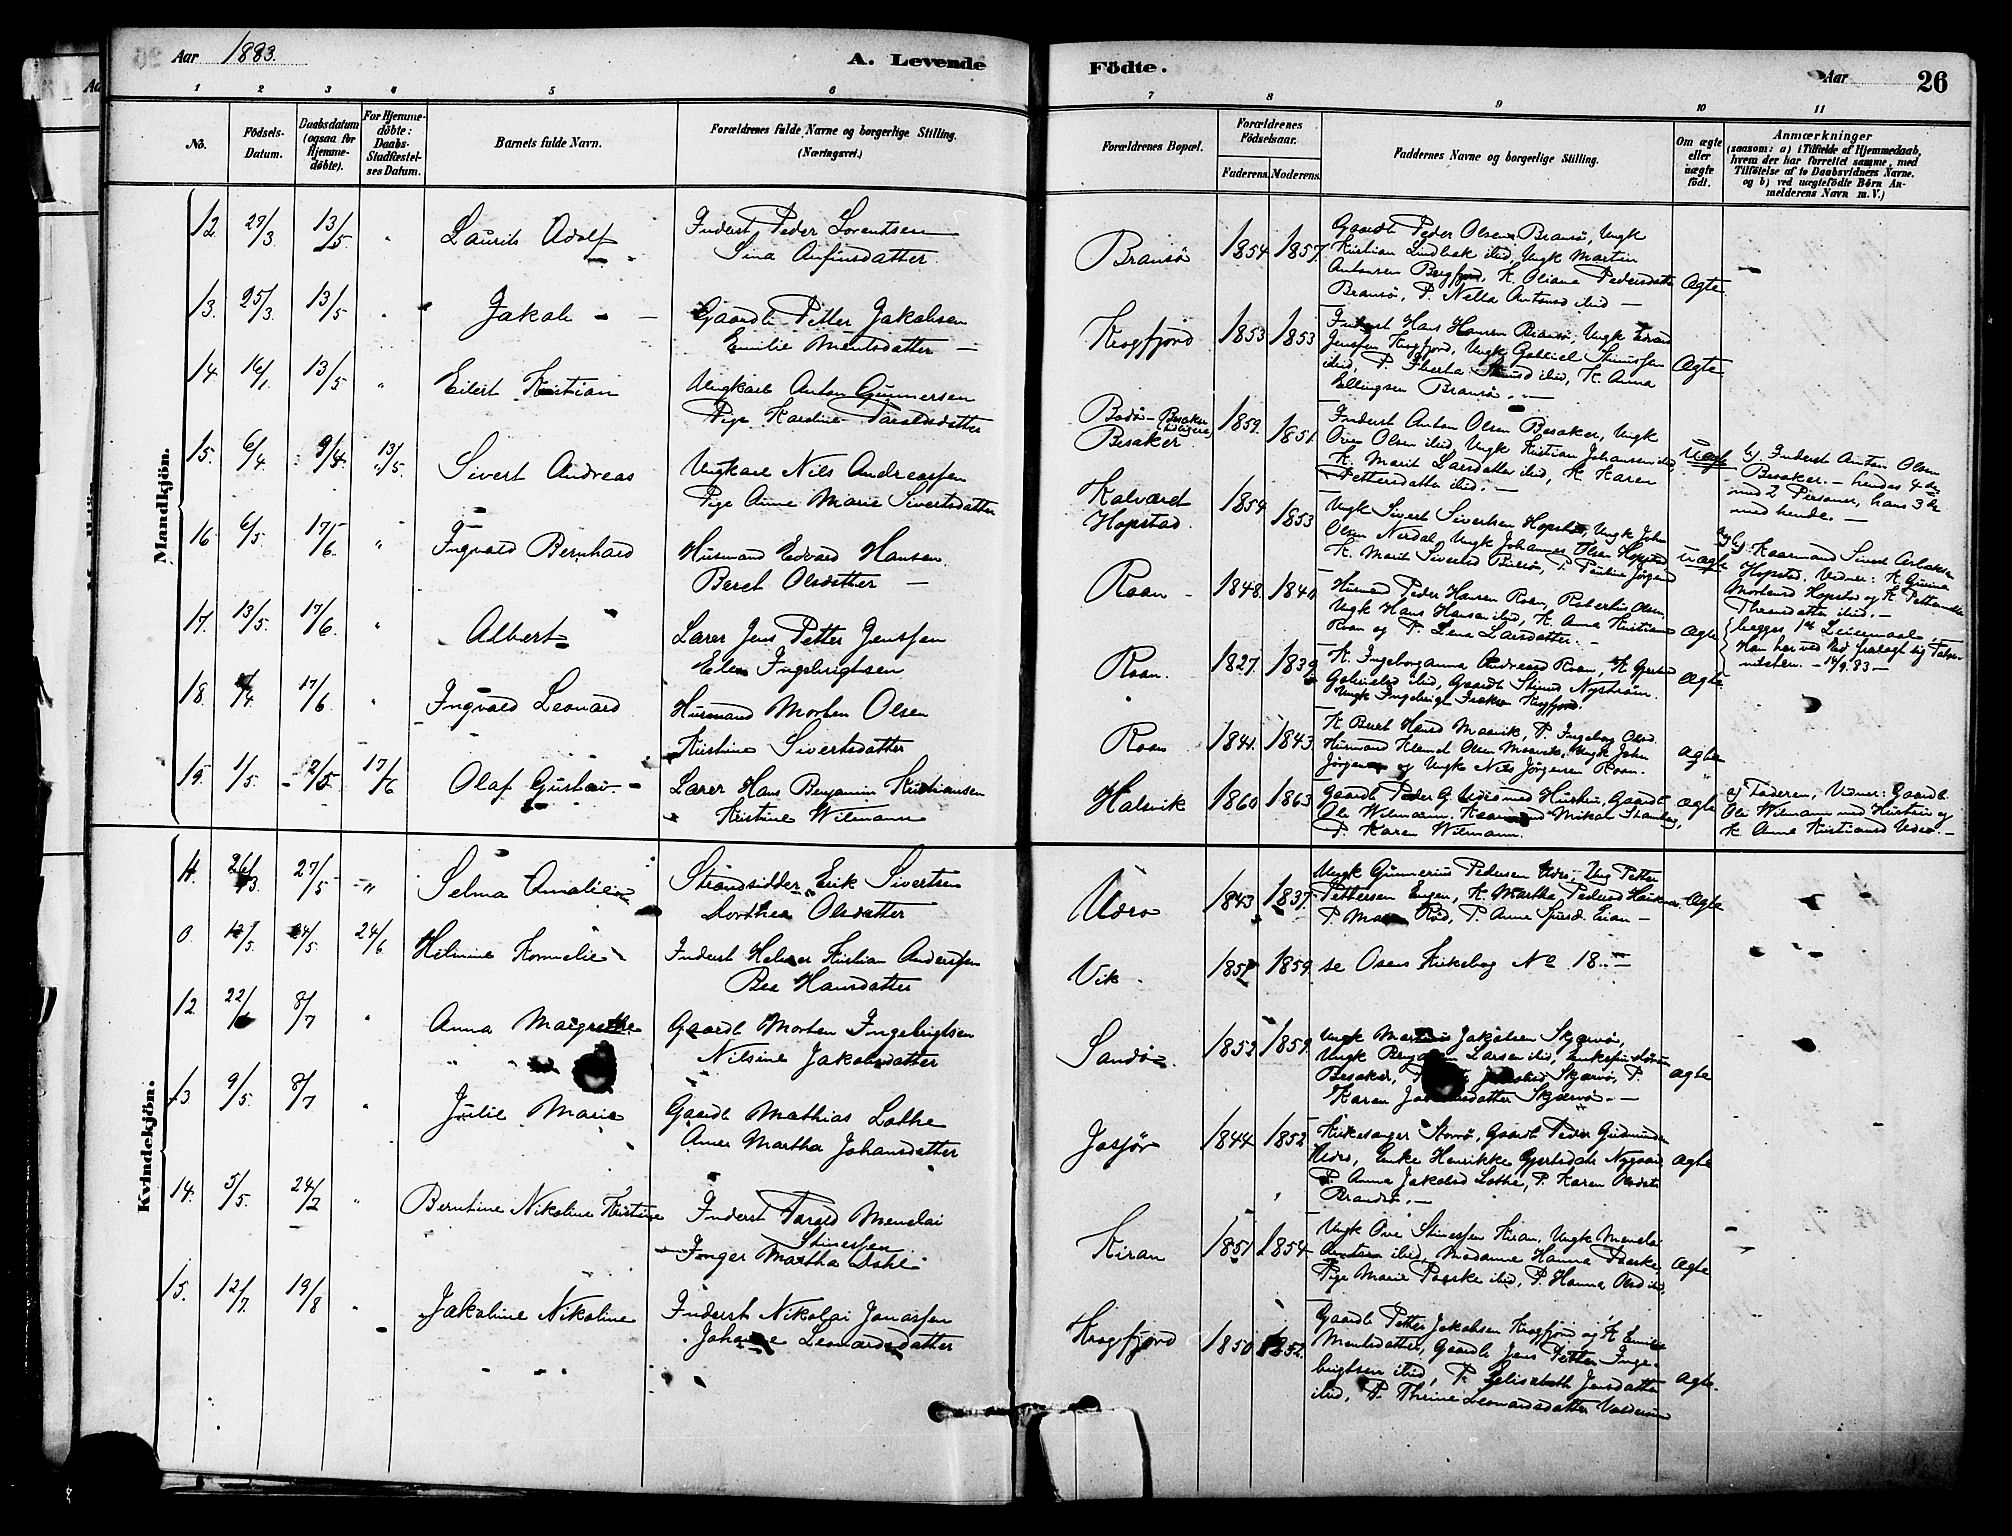 Aar 1883.
A. Levende
Fødte.
Aar
26
1 2 3 4 5 6 7 8 9 10 11
No.
Fødsels-Datum.
Daabsdatum (ogsaa for Hjemmedøbte).
For Hjemmedøbte: Daabs-Stadfæstelses Datum.
Barnets fulde Navn.
Forældrenes fulde Navne og borgerlige Stilling. (Næringsvei.)
Forældrenes Bopæl.
Forældrenes Fødselsaar.
Faderens. Moderens.
Faddernes Navne og borgerlige Stilling.
Om ægte eller uægte født.
Anmærkninger
(saasom: a) i Tilfælde af Hjemmedaab,
hvem der har forrettet samme, med
Tilføielse af to Daabsvidners Navne.
og b) ved uægtefødte Børn Anmelderens Navn m. V.)
Mandkjön.
12. 27/3 13/5 " Laurits Adolf Inderst Peder Lorentsen
Sina Anfinsdatter
Bransø 1854 1857 Gaardb Peder Olsen Bransø, Ungk
Kristian Lindbak ibid, Ungk Martin
Antonsen Bergfjord, K. Oliana Pedersdatter
Bransø, P. Nella Antonsd ibid — Ægte
13. 25/3 13/5 " Jakob Gaardb Petter Jakobsen
Emilie Mentsdatter
Kragfjord 1853 1853 Inderst Hans Hansen Bransø, Ungk Edvard
Jenssen Kragfjord, Ungk Gabriel
ibid, K. Anna
Ellingsen Bransø. — Ægte
14. 16/1 13/5 " Eilert Kristian Ungkarl Anton Gunnersen
Pige Karoline Taraldsdatter
Bodø — Besaker
Besaker 1859. 1851. Inderst Anton Olsen Besaker, Ungk
Ove Olsen ibid, Ungk Kristian Johansen ibid,
K. Marit Larsdatter ibid, K. Karen
Pettersdatter ibid. — uægte b) Inderst Anton Olsen
Besaker. — hendes 4de
med 2 Personer, hans 3de
med hende. —
15. 6/4 9/4 13/5 Sivert Andreas Ungkarl Nils Andreassen
Pige Anne Marie Sivertsdatter
Kalværet
Hopstad. 1854 1853 Ungk Sivert Sivertsen Hopstad, Ungk John
Olsen Nerdal, Ungk Johannes Olsen Hopstad
K. Marit Sivertsd P. Pauline Jørgensd uægte Kaarmand Sivert Aslaksen
Hopstad. Vidner: K. Gurine
Mortensd Hopstad og K. Pettersdatter
ibid. —
begges 1ste Leiermaal.
Han har ved Ed fralagt sig 14/9 83 —
16 6/5 17/6 " Ingvald Bernhard Husmand Edvard Hansen
Beret Olsdatter —
Roan 1848. 1841. Husmd Peder Hansen Roan, Robertus Olsen
Ungk Hans Hansen ibid, K. Anna Kristiansd
Roan og P. Lena Larsdatter. — Ægte
17. 13/5 17/6 " Albert Lærer Jens Petter Jenssen
Elen Ingebrigtsen
Roan. 1827. 1839 K. Ingeborganna Andreasd Roan, K. Gjertrud
Gabrielsd ibid, Gaardb Nystrøm.
Ungk Ingebrigt Kragfjord ægte
18. /4 17/6 " Ingvald Leonard Husmand Morten Olsen
Kristine Sivertsdatter
Roan 1841. 1843. K. Beret Hansd Maavik, P. Ingebor Olsd.
Husmand Klemet Olsen Maavik, Ungk John
Jørgensen og Ungk Nils Jørgensen Roan. ægte
19. 1/5 2/5 17/6 Olaf Gustav Lærer Hans Benjamin Kristiansen
Kristine Wilmann
Halsvik 1860 1863 Gaardb Peder G. med Hustru, Gaardb
Ole Wilmann, Mikal
P. Karen Wilmann. ægte a) Faderen, Vidner: Gaardb.
Ole Wilmann med Hustru og
K. Anna Kristiansd
Kvindekjön.
27/5 " Selma Amalie Strandsidder Erik Sivertsen
Dorthea Olsdatter
Udro 1843 1837. Ungk Gunnerius Pedersen Udro, Ung Petter
Pettersen Engen, K. Martha Pedersd
P. Rød, P. Anne — Ægte
24/5 24/6 Helmine Kornelie Inderst Helmer Kristian Anderssen
Bea Hansdatter
Vik. 1859. se Osens Kirkebog No 18. —
12 22/ 8/7 " Anna Margrethe Gaardb Morten Ingebrigtsen
Nilsine Jakobsdatter
Sandø 1852 1859. Ungk Jakobsen Skjærvø,
Ungk Larsen ibid, Enkefru
Besaker, Skjærvø, P.
Karen Skjærvø. — Ægte
13 9/5 8/7 " Julie Marie Gaardb Mathias Lothe
Anne Martha Johansdatter
Jøsfør 1844 1852 Kirkesanger Gaardb Peder
Udro, Enke Henrikke Gjertsdatter Nygaard
P. Anna Jakobsd Lothe, P. Karen Olsdatter
Brandsø. — Ægte
14. 5/5. 24/2 " Berntine Nikoline Kristine Inderst Tarald Menelai
Stinessen
Inger Martha Dahl
Kiran 1851 1854 Ungk Ove Stinessen Kiran, Ungk Menelai
ibid, Madame Hanna Paaske
Pige Marie Paaske ibid, P. Hanna Olsd ibid, Ægte
15. 12/7. 19/8 " Jakobine Nikoline Inderst Nikolai Jonassen
Johanne Leonardsdatter
Kragfjord 1850 1852. Gaardb Petter Jakobsen Kragfjord og K. Emilie
Mentsdatter, Gaardb Jens Petter Ingebrigtsen
ibid, P. Elisabeth Jensdatter
ibid, P. Thrine Leonardsdatter Ægte.